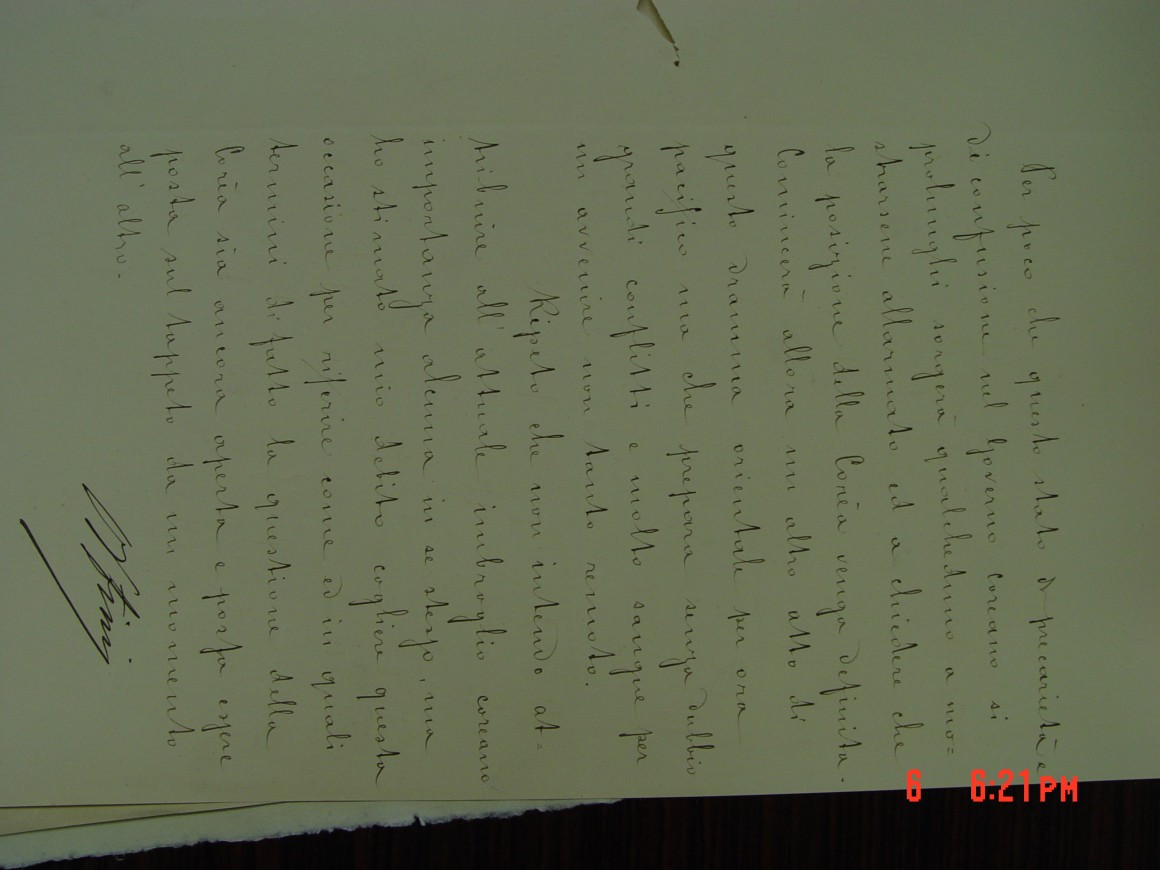 Per poco che questo stato di precarietà e
di confusione nel Governo coreano si
prolunghi sorgerà qualcheduno a mo=
strarsene allarmato ed a chiedere che
la posizione della Corèa venga definita.
Comincerà allora un altro atto di
questo dramma orientale per ora
pacifico ma che prepara senza dubbio
grandi conflitti e molto sangue per
un avvenire non tanto remoto.
Ripeto che non intendo at=
tribuire all' attuale imbroglio coreano
importanza alcuna in se stesso, ma
ho stimato mio debito cogliere questa
occasione per riferire come ed in quali
termini di fatto la questione della
Corèa sia ancora aperta e possa essere
posta sul tappeto da un momento
all' altro.
6 6:21PM